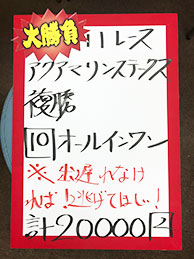 大勝負
11レース
アクアマリンステークス
複勝
[10]オールインワン
※出遅れなけ
れば逃げてほしい!
計20000円